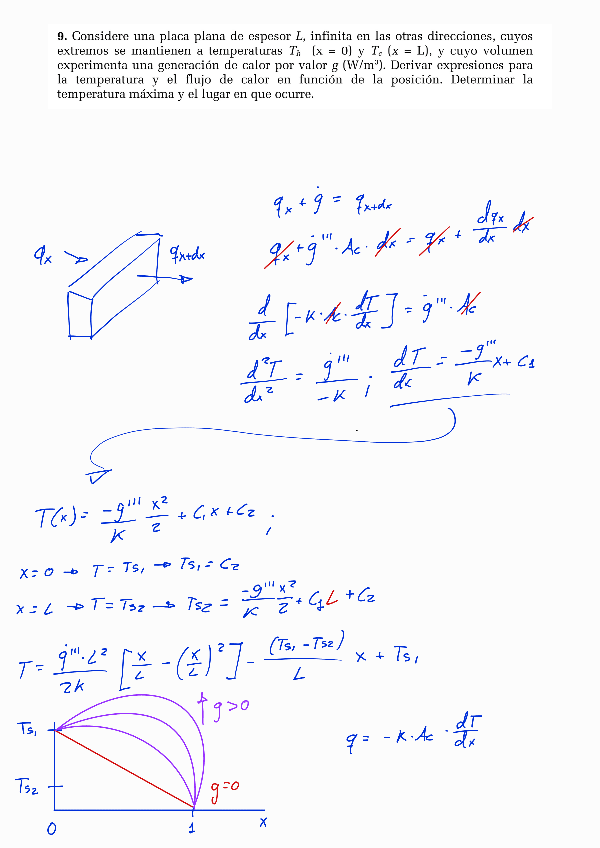 9. Considere una placa plana de espesor L, infinita en las otras direcciones, cuyos
extremos se mantienen a temperaturas Tₕ (x = 0) y T꜀ (x = L), y cuyo volumen
experimenta una generación de calor por valor g (W/m³). Derivar expresiones para
la temperatura y el flujo de calor en función de la posición. Determinar la
temperatura máxima y el lugar en que ocurre.
qx + ġ = qx+dx
qx + ġ''' · Ac · dx = qx + dqx/dx dx
qx
qx+dx
d/dx [-K · Ac · dT/dx] = ġ''' · Ac
d²T/dx² = ġ'''/-K ; dT/dx = -g'''/K x + C1
T(x) = -g'''/K x²/2 + C1x + C2 ;
x=0 → T = Ts1 → Ts1 = C2
x=L → T = Ts2 → Ts2 = -g'''/K x²/2 + C1L + C2
T = ġ'''·L²/2K [x/L - (x/L)²] - (Ts1 - Ts2)/L x + Ts1
g>0
Ts1
q = -K·Ac · dT/dx
Ts2
g=0
0
1
x